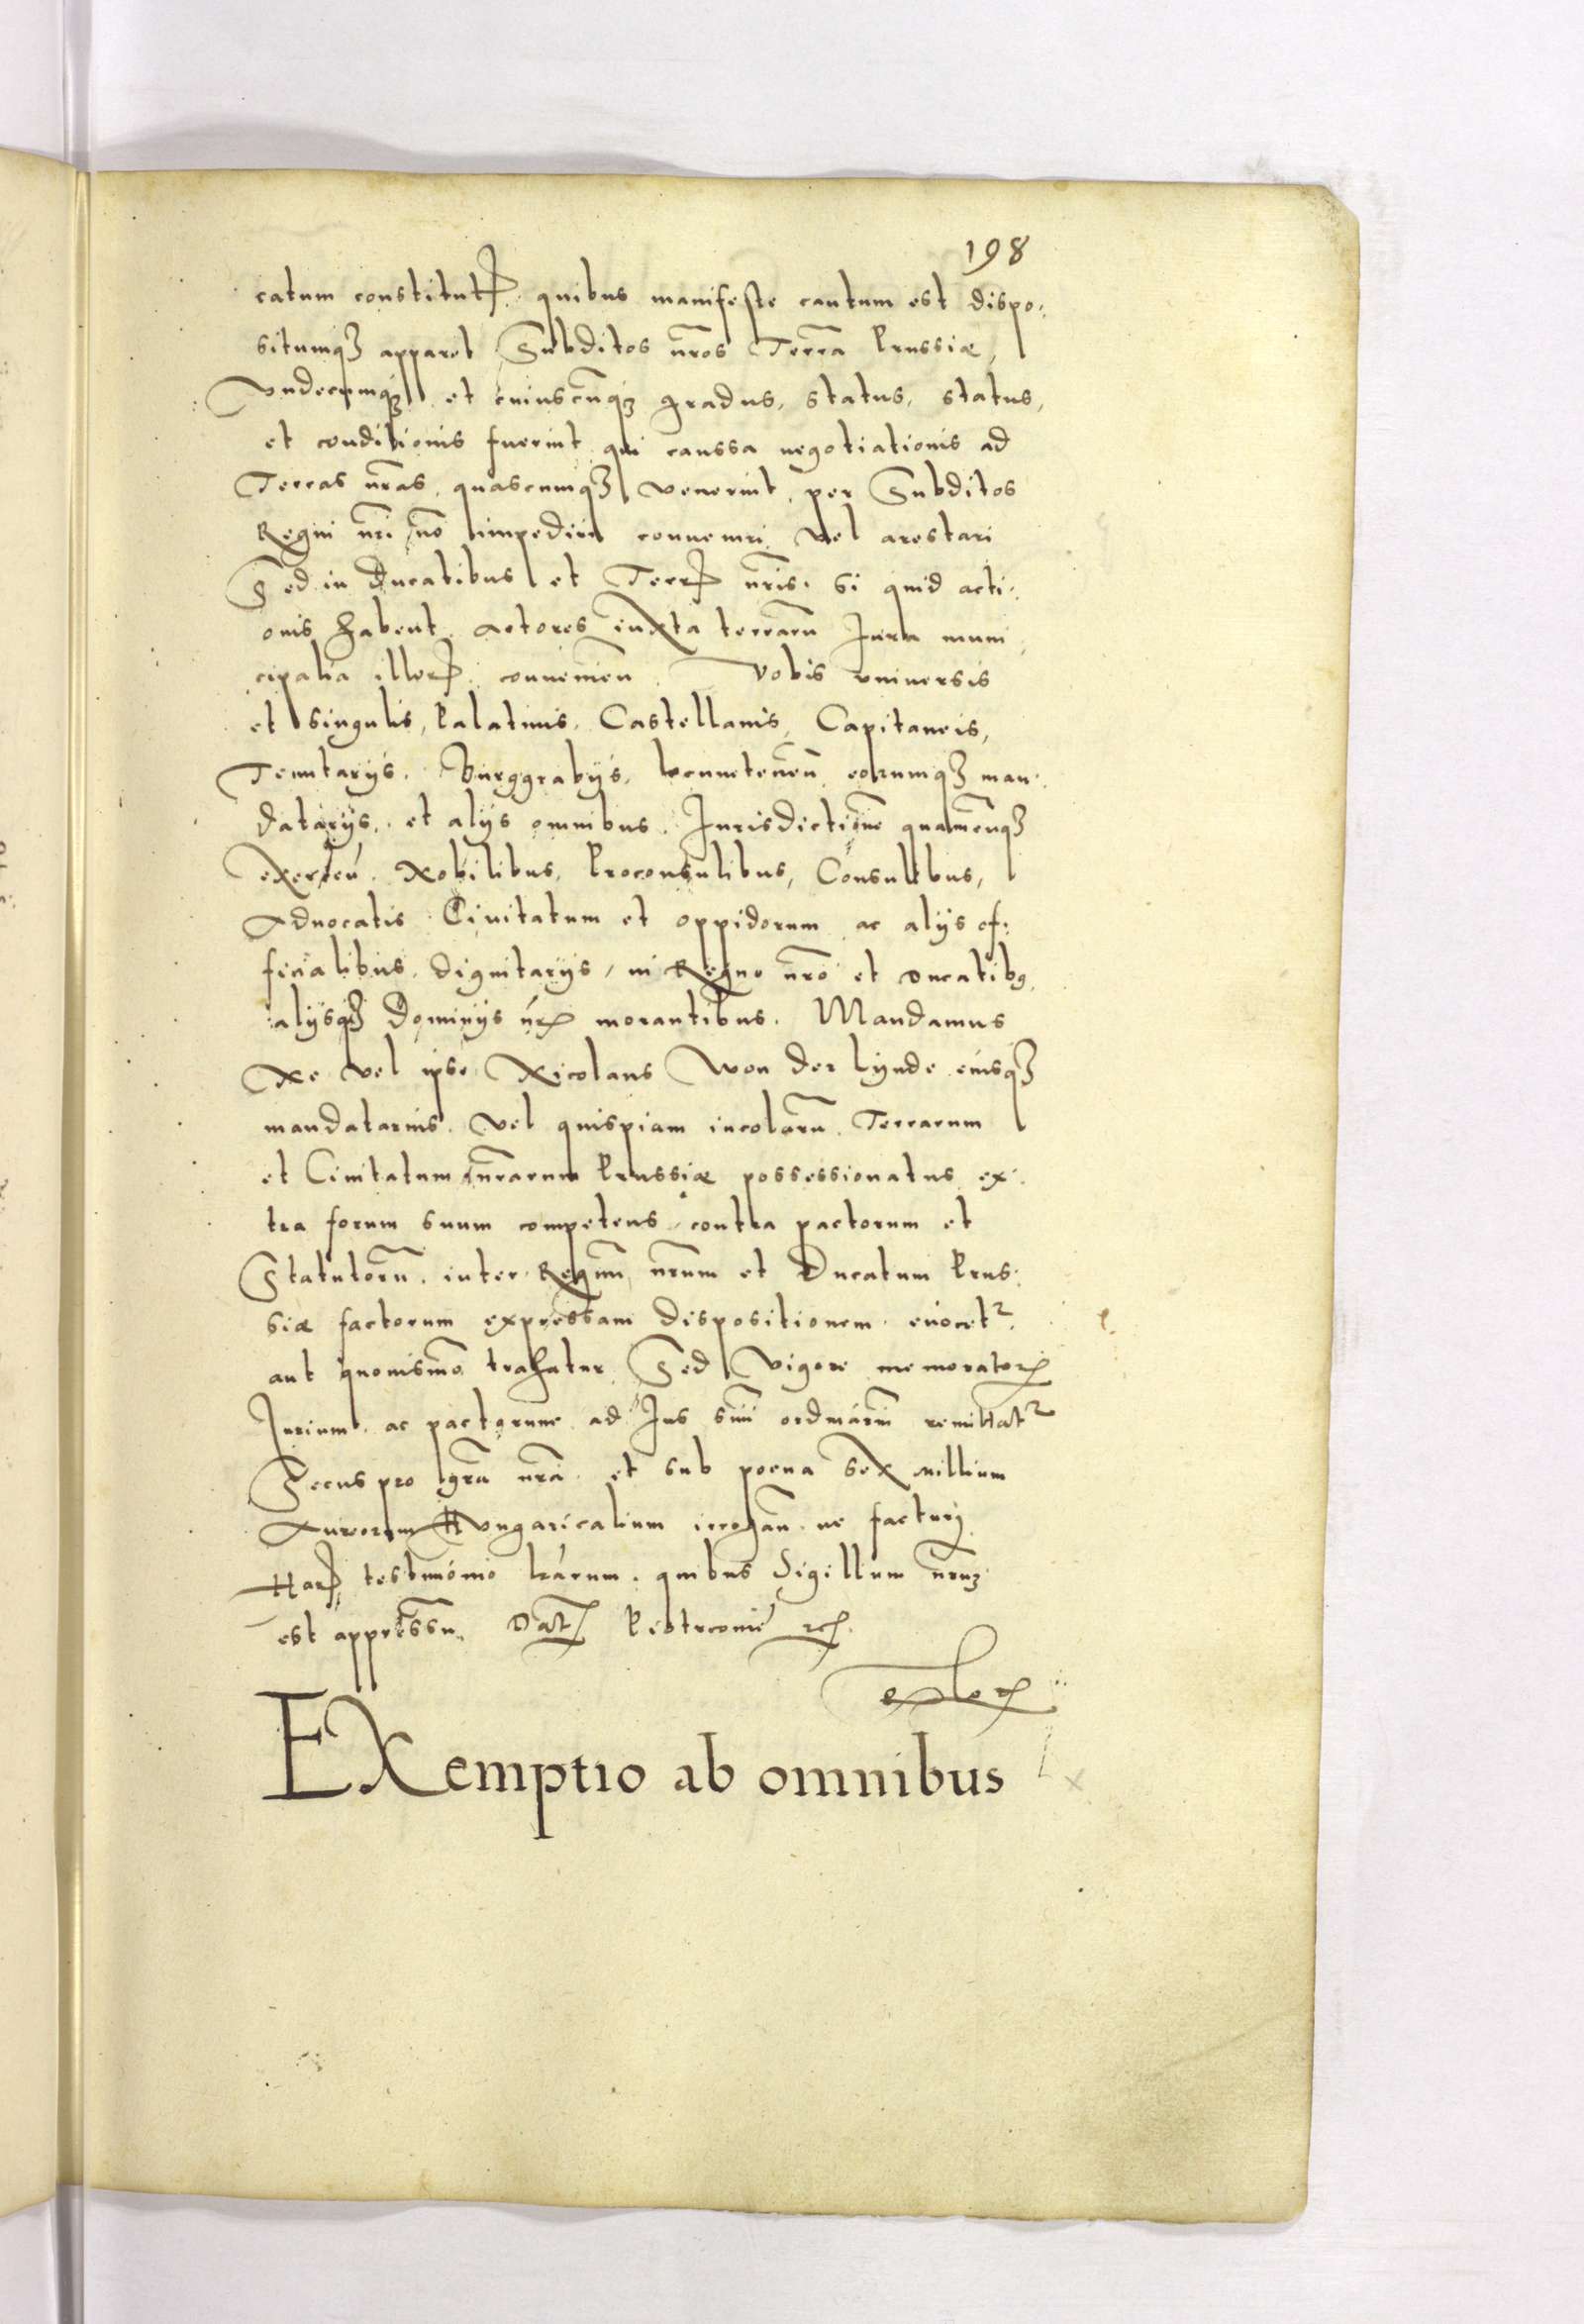 198
catum constitut quibus manifeste cautum est dispo:
situmqȝ apparet Subditos nr̃os Terra Prussiæ,
Vndecumqȝ et cuiuscũqȝ gradus, status, status,
et conditionis fuerint qui caussa negotiationis ad
Terras nr̃as, quascumqȝ venerint, per Subditos
Regni nr̃i nõ impediri conueniri vel arestari
Sed in Ducatibus et Terr nr̃is. Si quid acti:
onis habent Actores iuxta terrarũ Jura muni
cipalia illor conueniẽn. Vobis vniuersis
et singulis, Palatinis, Castellanis, Capitaneis,
Tenutarijs. Burggrabijs, Locumtenẽn eorumqȝ man:
datarijs, et alijs omnibus. Jurisdictionẽ quamcũqȝ
exercẽn. Nobilibus, Proconsulibus, Consulibus,
Aduocatis Ciuitatum et oppidorum ac alijs of:
ficialibus, dignitarijs, in Regno nr̃o et Ducatibꝰ
alijsqȝ Dominijs nr̃ꝭ morantibus. Mandamus
Ne vel ipse Nicolaus Won der Lynde eiusqȝ
mandatarius. Vel quispiam incolarũ Terrarum
et Ciuitatum nr̃arum Prussiæ possessionatus ex:
tra forum suum competens, contra pactorum et
Statutorũ, inter Regnũ nr̃um et Ducatum Prus:
siæ factorum expressam dispositionem euocet᷑
aut quouismõ trahatur Sed vigore memoratorꝝ
Jurium ac pactorum ad Jus suũ ordinariũ remittat᷑
Secus pro gr̃a nr̃a et sub poena sex millium
Aureorum Hungaricalium irrogan̄. ne facturi
Har testimonio l̃rarum. quibus Sigillum nr̃uȝ
est appressũ. Dat Piotrconie ꝛc.
EXemptio ab omnibus